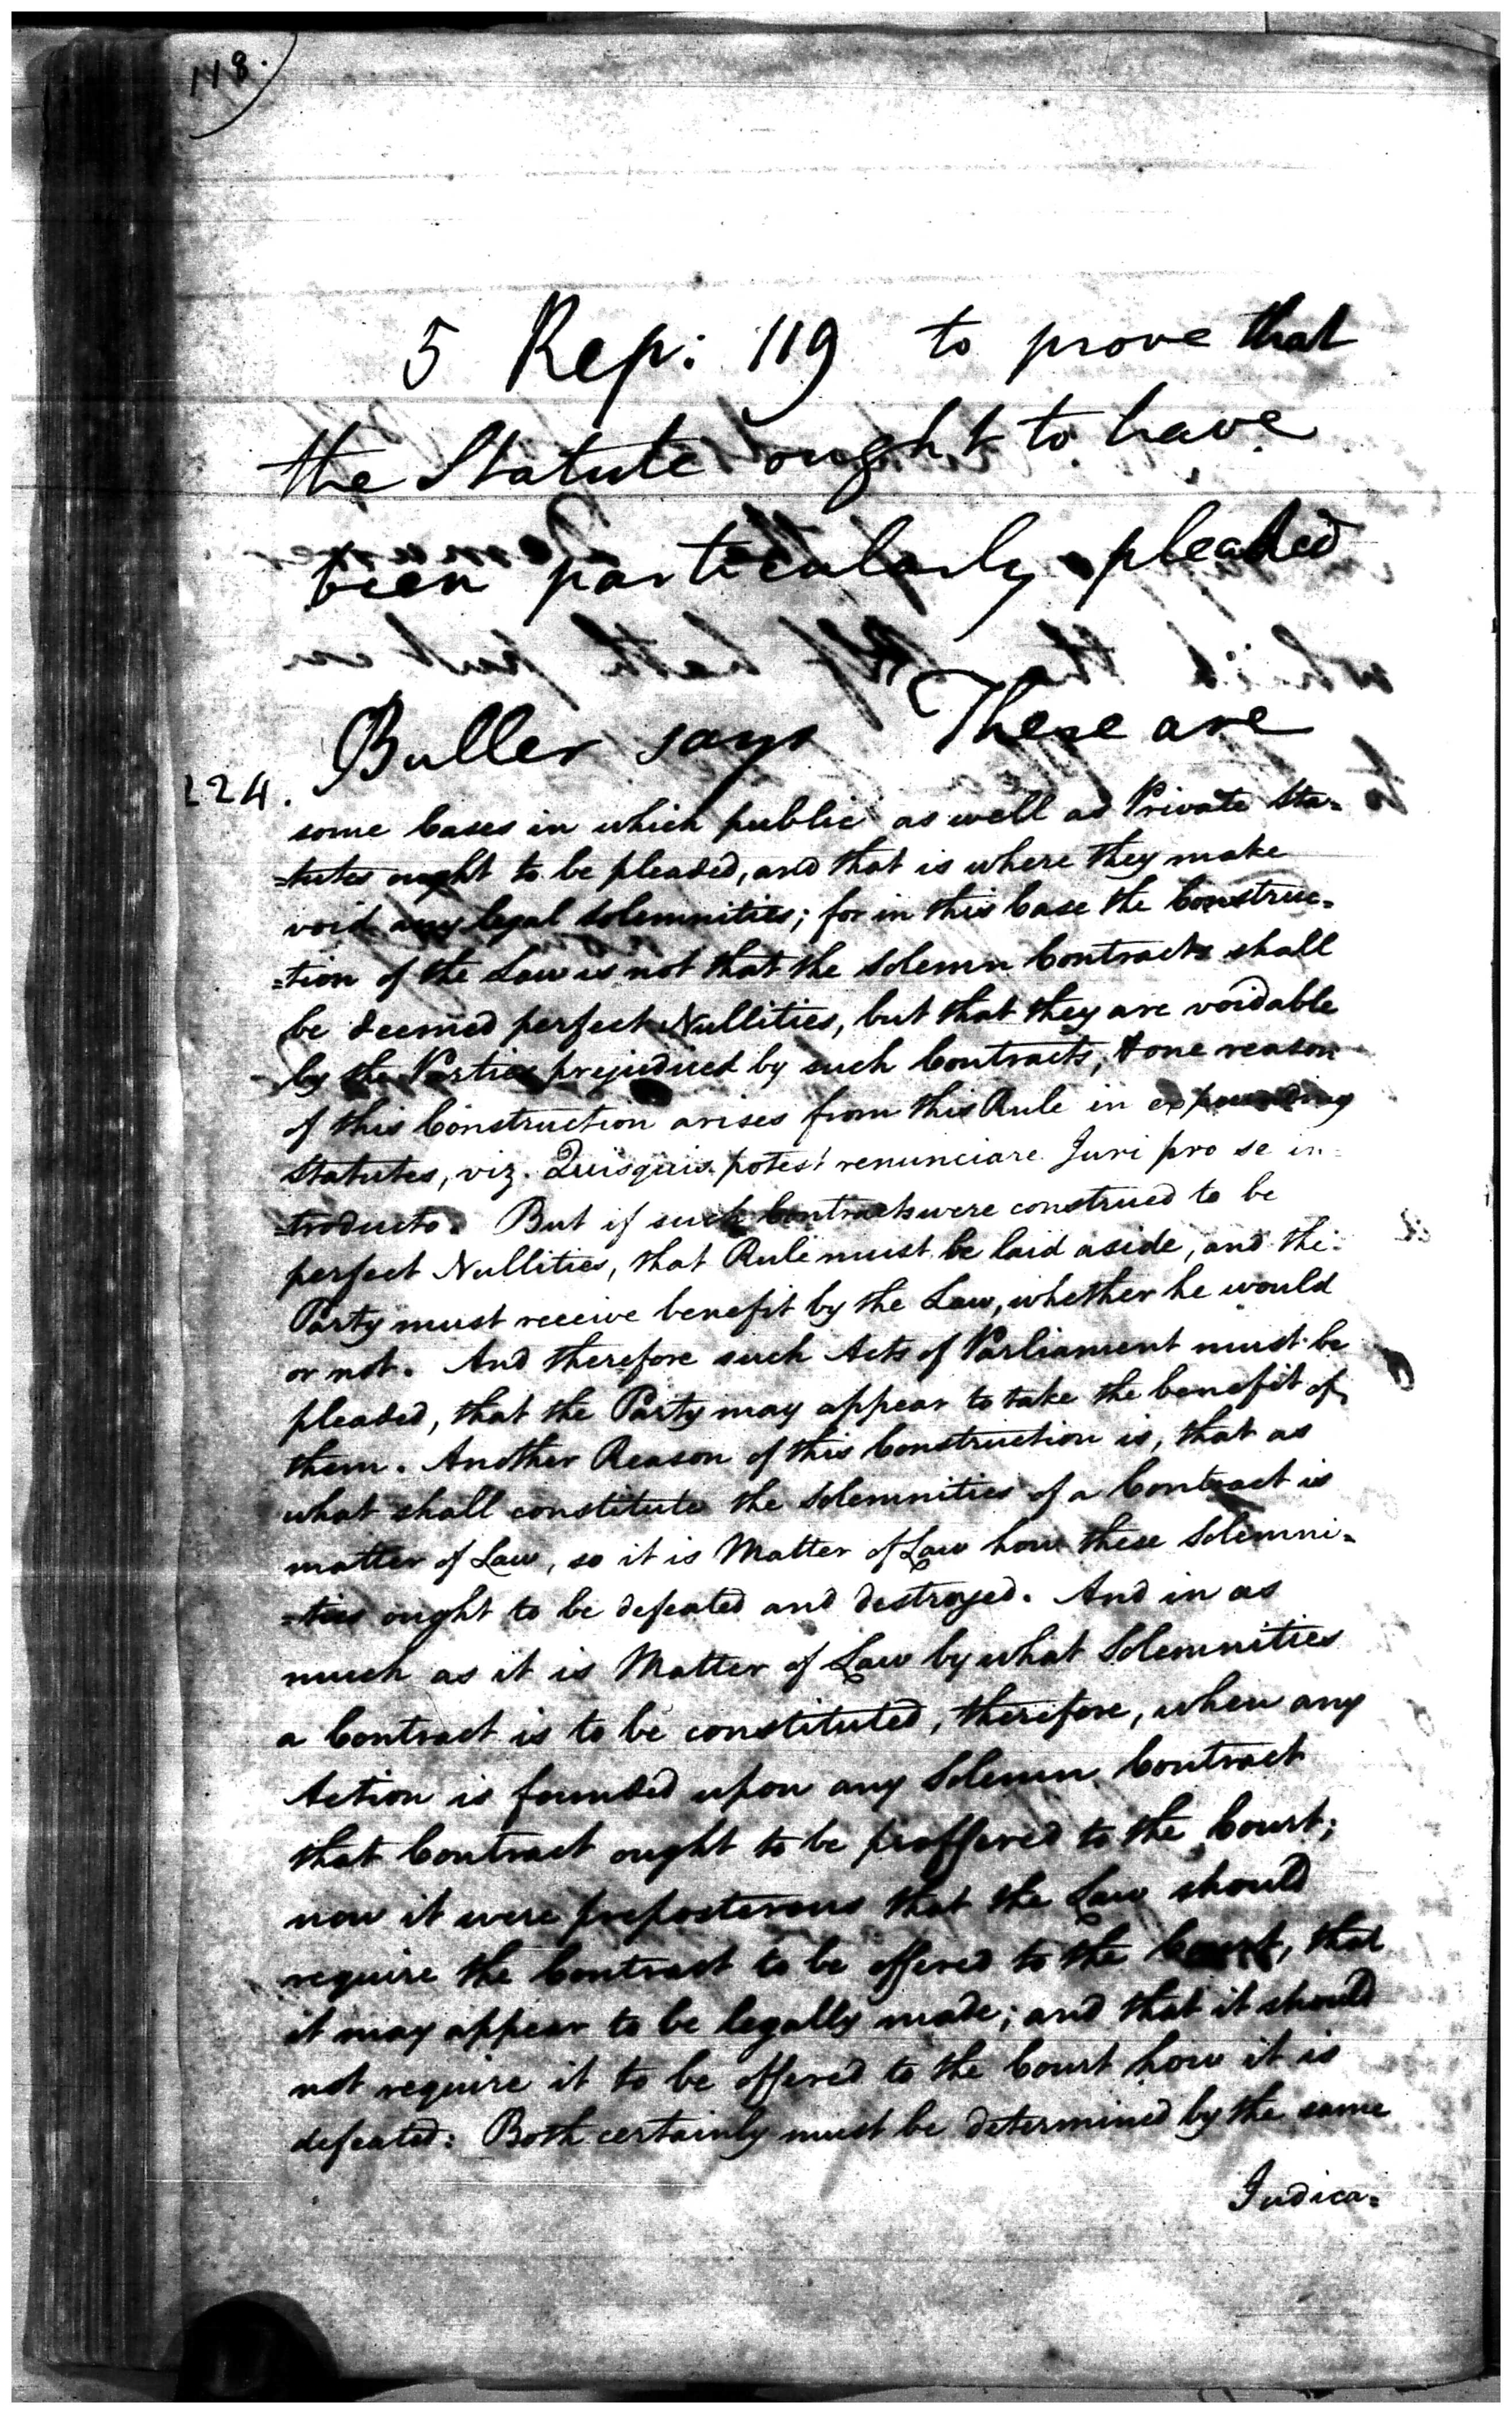 118.
5 Rep: 119 to prove that
the Statute ought to have
been particularly pleaded
Buller says There are
224.
some Cases in which public as well as Private Sta=
=tutes ought to be pleaded, and that is where they make
void any legal Solemnities; for in this Case the Construc=
=tion of the Law is not that the Solemn Contracts shall
be deemed perfect Nullities, but that they are voidable
by the Parties prejudiced by such Contracts, & one reason
of this Construction arises from this Rule in expounding
Statutes, viz. Quisquis potest renunciare Juri pro se in=
=troducto. But if such Contracts were construed to be
perfect Nullities, that Rule must be laid aside, and the
Party must receive benefit by the Law, whether he would
or not. And therefore such Acts of Parliament must be
pleaded, that the Party may appear to take the benefit of
them. Another Reason of this Construction is, that as
what shall constitute the Solemnities of a Contract is
matter of Law, so it is Matter of Law how these Solemni=
=ties ought to be defeated and destroyed. And in as
much as it is Matter of Law by what Solemnities
a Contract is to be constituted, therefore, when any
Action is founded upon any Solemn Contract
that Contract ought to be proffered to the Court;
now it were preposterous that the Law should
require the Contract to be offered to the Court, that
it may appear to be legally made; and that it should
not require it to be offered to the Court how it is
defeated: Both certainly must be determined by the same
Judica=